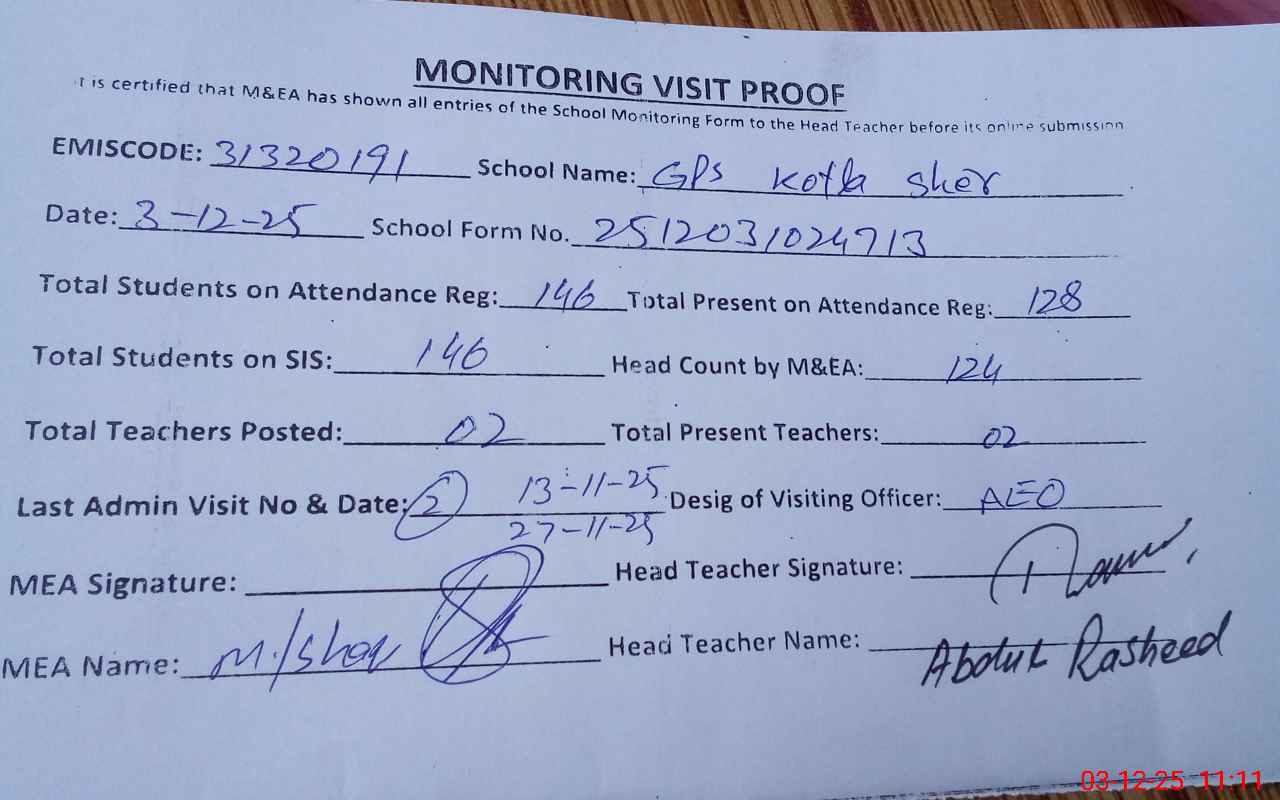 MONITORING VISIT PROOF
t is certified that M&EA has shown all entries of the School Monitoring Form to the Head Teacher before its online submission
EMISCODE: 31320191 School Name: GPS Kotla Sher
Date: 3-12-25 School Form No. 2512031024713
Total Students on Attendance Reg: 146 Total Present on Attendance Reg: 128
Total Students on SIS: 146 Head Count by M&EA: 124
Total Teachers Posted: 02 Total Present Teachers: 02
Last Admin Visit No & Date: 2 13-11-25 Desig of Visiting Officer: AEO
27-11-25
MEA Signature: Head Teacher Signature:
MEA Name: M. Head Teacher Name: Abdul Rasheed
03-12-25 11:11